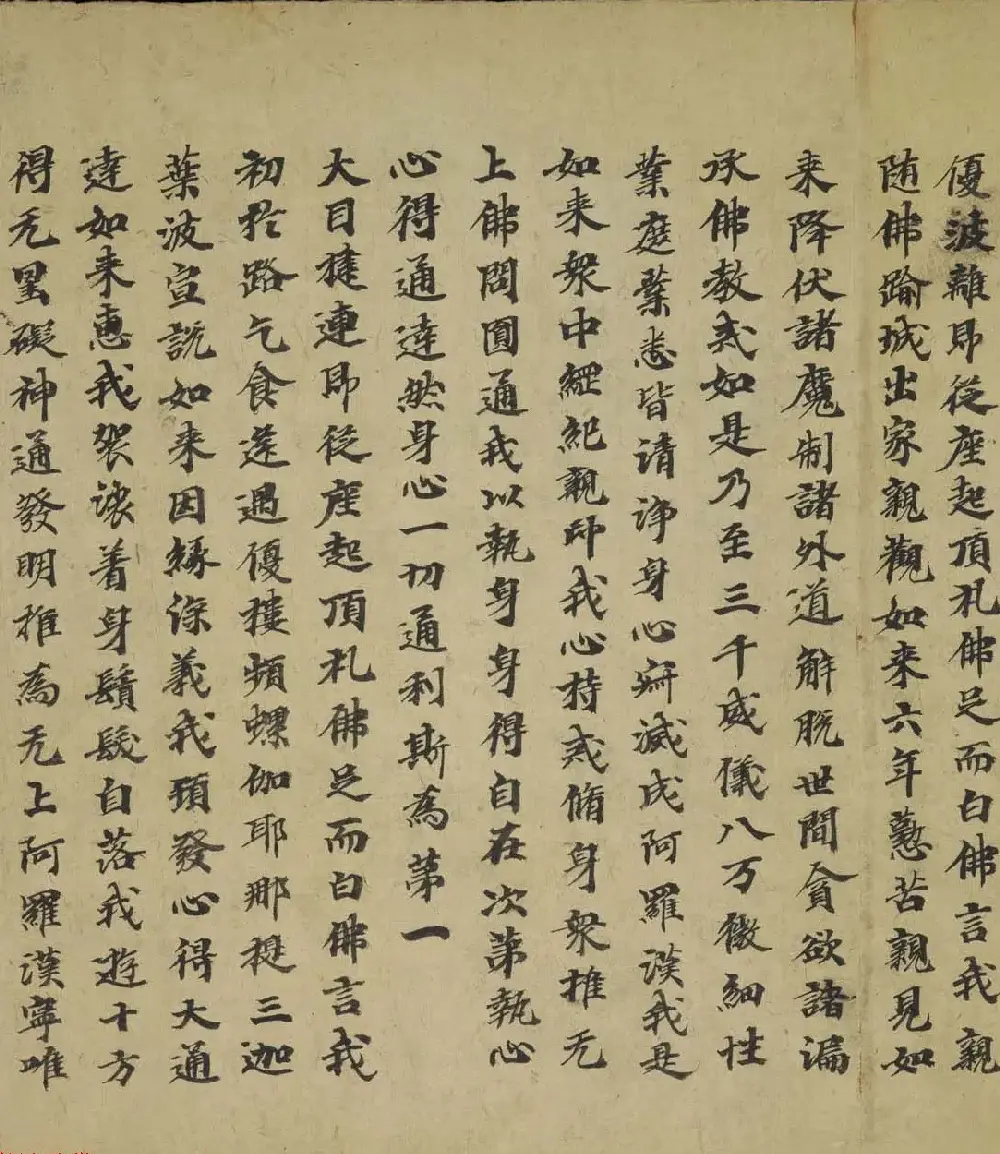 優波離即從座起頂礼佛足而白佛言我親
随佛踰城出家親觀如来六年懃苦親見如
来降伏諸魔制諸外道解脱世間貪欲諸漏
承佛教戒如是乃至三千威儀八万微細性
業庭業悉皆清淨身心㝛滅成阿羅漢我是
如来衆中綱紀親印我心持戒脩身衆推无
上佛問圓通我以執身身得自在次第執心
心得通達然身心一切通利斯為第一
大目揵連即從座起頂礼佛足而白佛言我
初於路乞食逢遇優樓頻螺伽耶那提三迦
葉波宣說如来因緣深義我頓發心得大通
達如来惠我袈裟着身鬚髮自落我遊十方
得无罣礙神通發明推為无上阿羅漢寧唯